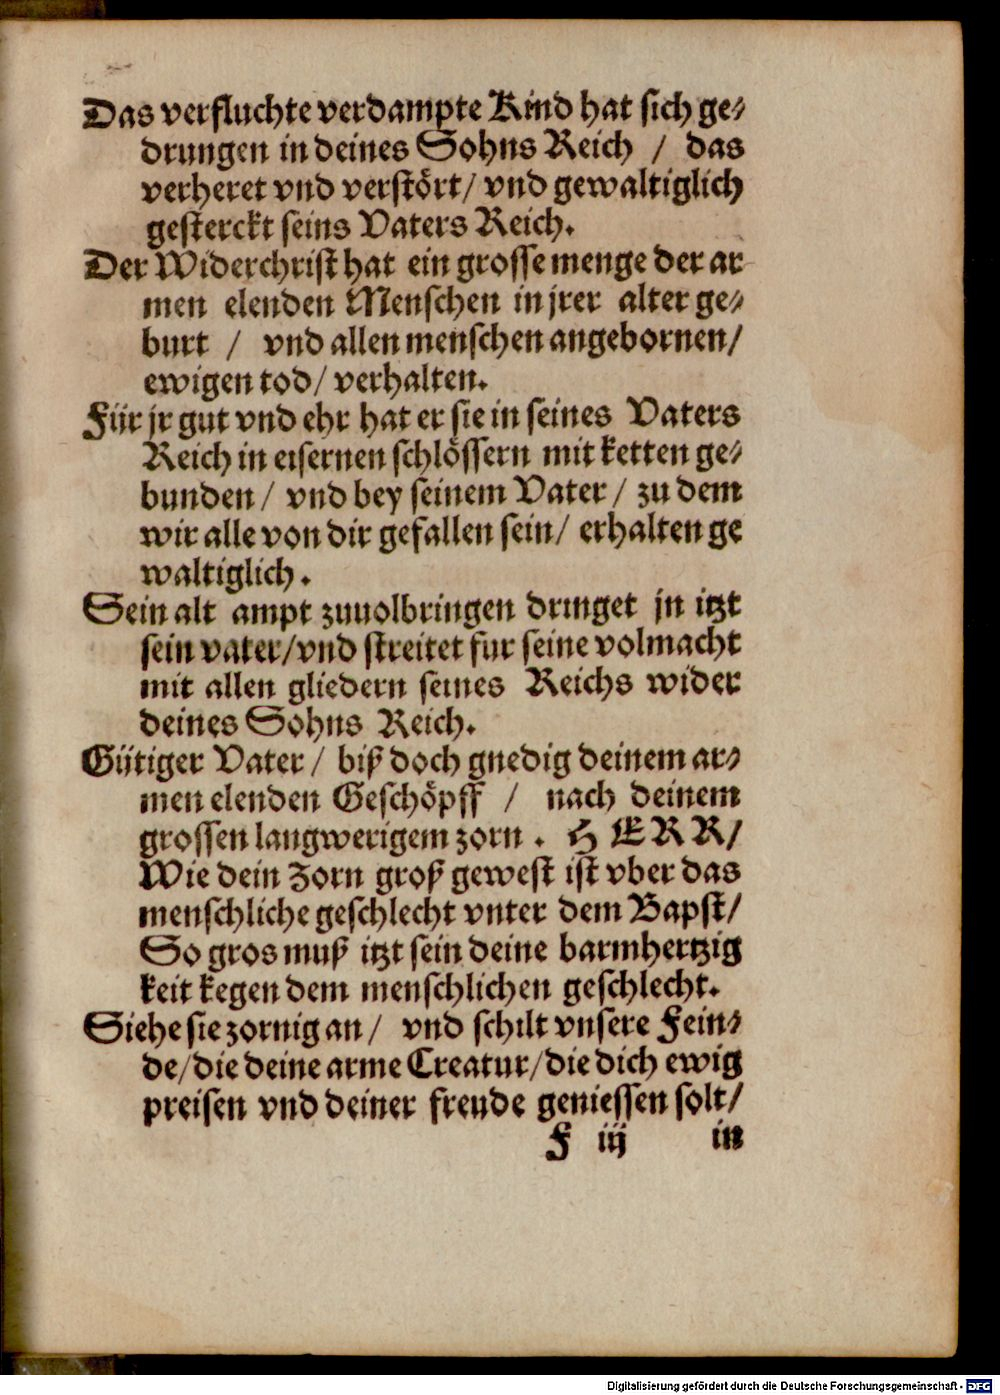 Das verfluchte verdampte Kind hat sich ge⸗
drungen in deines Sohns Reich / das
verheret vnd verstört/ vnd gewaltiglich
gesterckt seins Vaters Reich.
Der Widerchrist hat ein grosse menge der ar
men elenden Menschen in jrer alter ge⸗
burt / vnd allen menschen angebornen/
ewigen tod/ verhalten.
Für jr gut vnd ehr hat er sie in seines Vaters
Reich in eisernen schlössern mit ketten ge⸗
bunden/ vnd bey seinem Vater/ zu dem
wir alle von dir gefallen sein/ erhalten ge
waltiglich.
Sein alt ampt zuuolbringen dringet jn itzt
sein vater/vnd streitet fur seine volmacht
mit allen gliedern seines Reichs wider
deines Sohns Reich.
Gütiger Vater/ biß doch gnedig deinem ar⸗
men elenden Geschöpff / nach deinem
grossen langwerigem zorn . HERR/
Wie dein Zorn groß gewest ist vber das
menschliche geschlecht vnter dem Bapst/
So gros muß itzt sein deine barmhertzig
keit kegen dem menschlichen geschlecht.
Siehe sie zornig an/ vnd schilt vnsere Fein⸗
de/die deine arme Creatur/die dich ewig
preisen vnd deiner freude geniessen solt/
F iij in
Digitalisierung gefördert durch die Deutsche Forschungsgemeinschaft - DFG